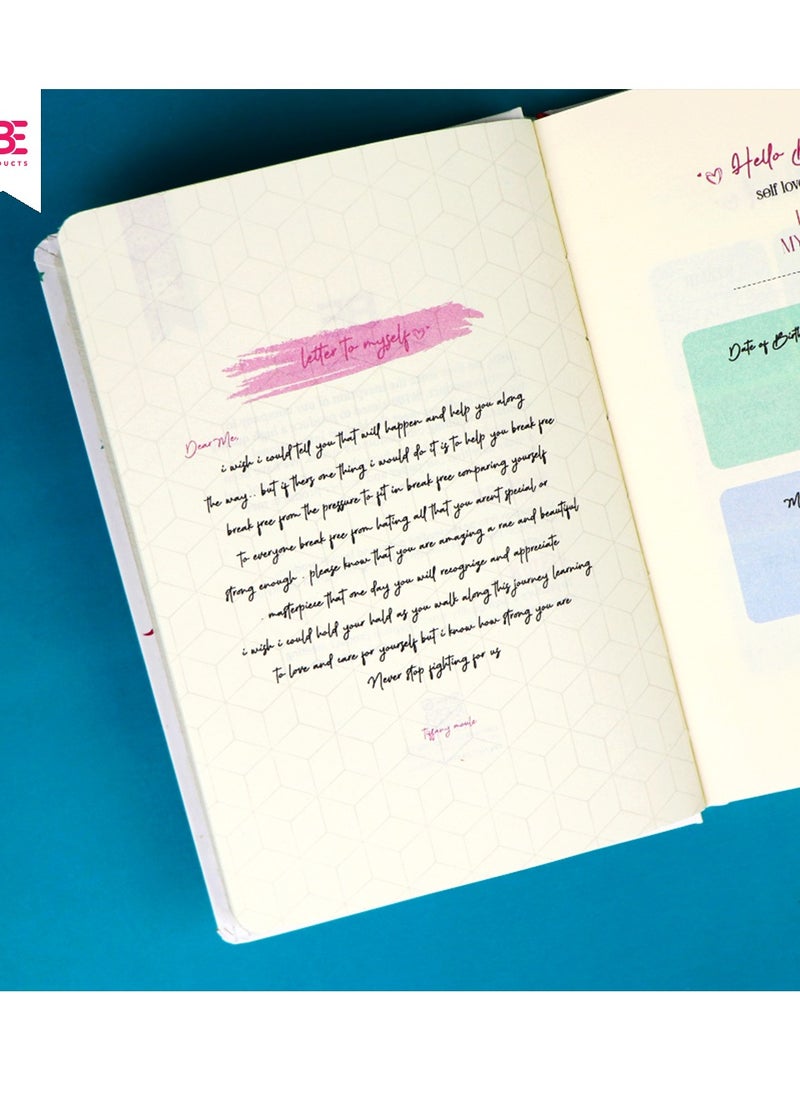 BE
DUCTS
letter to myself
Dear Me,
i wish i could tell you that will happen and help you along
the way.. but if thers one thing i would do it is to help you break free
break free from the pressure to fit in break free comparing yourself
to everyone break free from hating all that you arent special or
strong enough . please know that you are amazing a rae and beautiful
. masterpiece that one day you will recognize and appreciate
i wish i could hold your hald as you walk along this journey learning
to love and care for yourself but i know how strong you are
Never stop fighting for us
Tiffany moule
Hello
self love
MY
Date of Birth
M